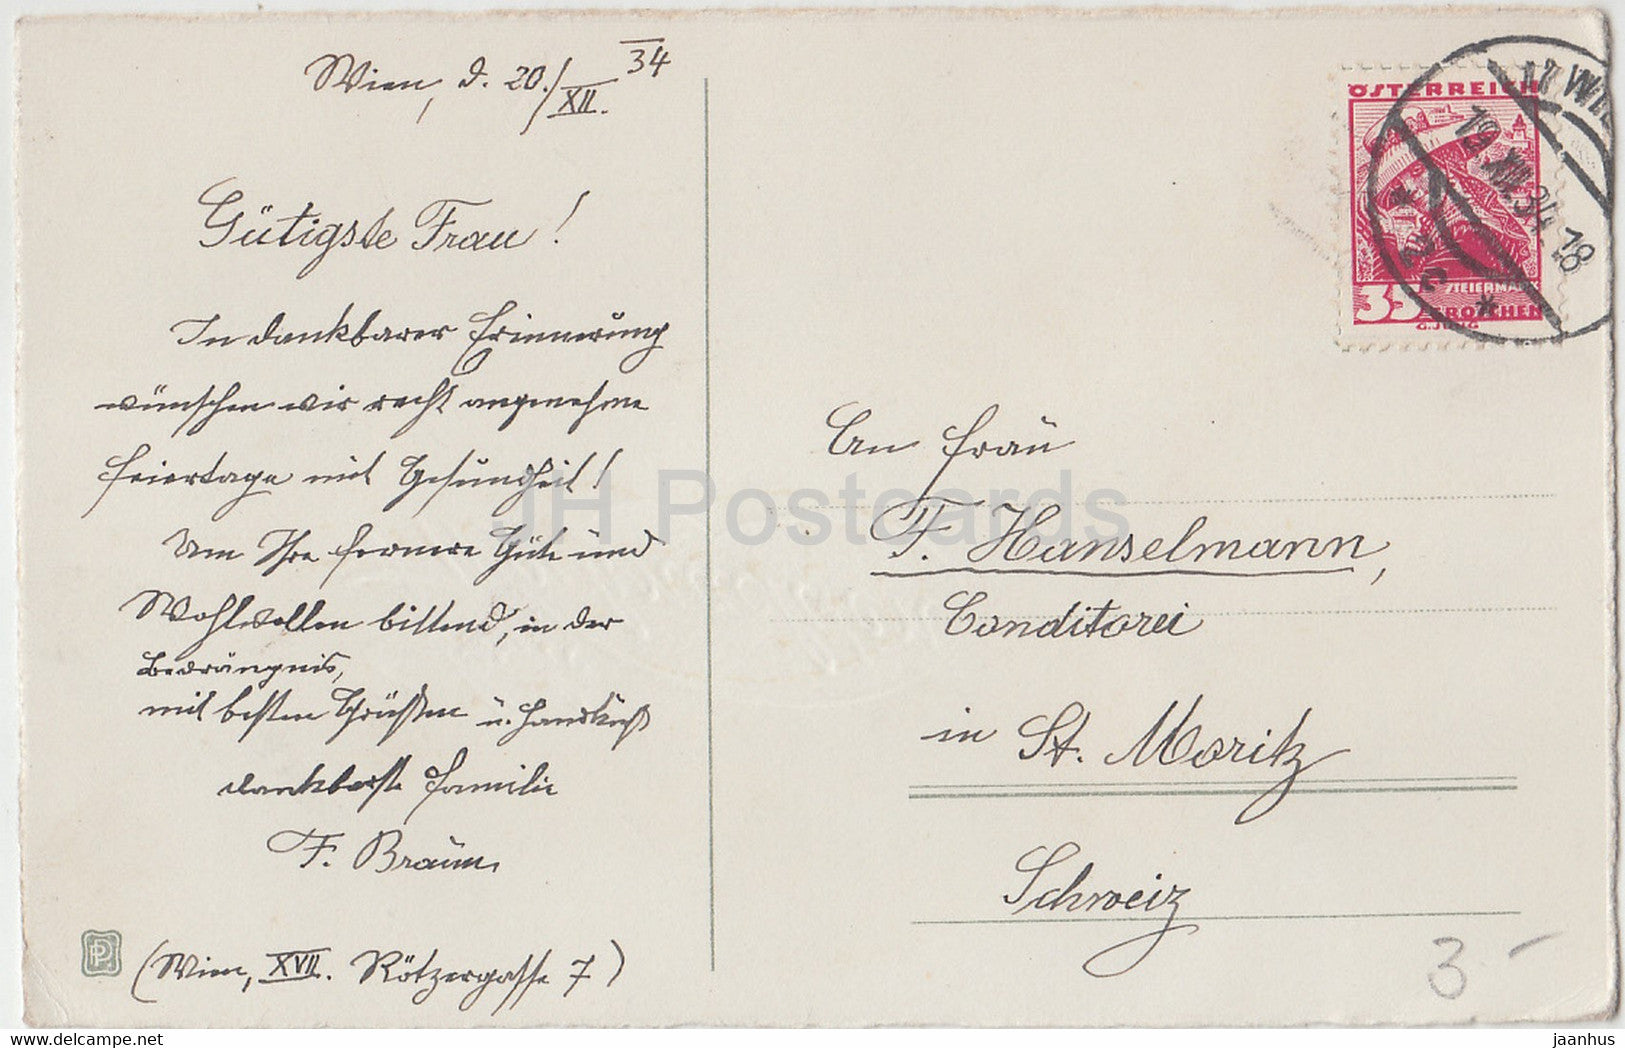 Wien, d. 20./XII. 34
Gütigste Frau!
In dankbarer Erinnerung
wünschen wir recht angenehme
Feiertage mit Gesundheit!
Um Ihre fernere Güte und
Wohlwollen bittend, in der
Bedrängnis,
mit besten Grüßen u. Handkuß
dankbarste Familie
F. Braun
(Wien, XVII. Rötzergasse 7)
ÖSTERREICH
STEIERMARK
35 GROSCHEN
G. JUNG
17 WIE
19.XII.34.18
* 2c *
An Frau
F. Hanselmann,
Conditorei
in St. Moritz
Schweiz
3.-
JH Postcards
PP
www.delcampe.net
jaanhus